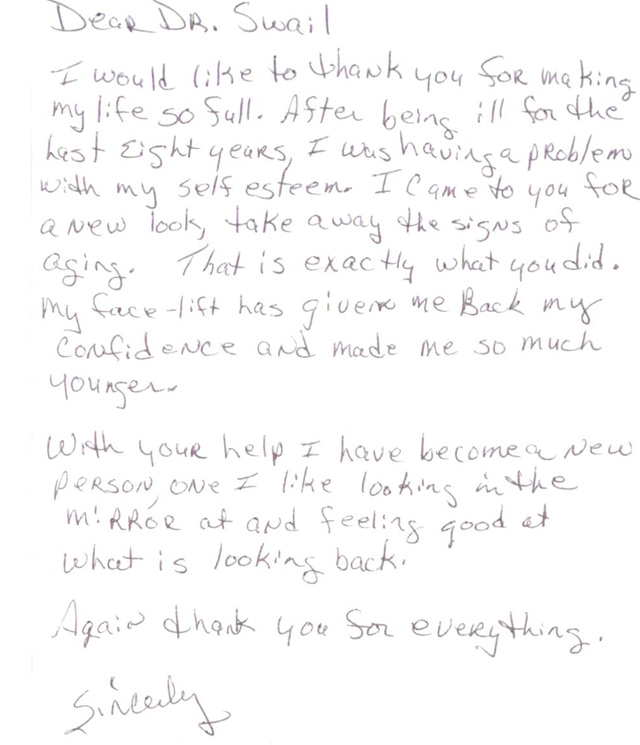 Dear Dr. Swail
I would like to thank you for making
my life so full. After being ill for the
last Eight years, I was having a problem
with my self esteem. I came to you for
a new look, take away the signs of
aging. That is exactly what you did.
My face-lift has given me Back my
confidence and made me so much
younger.
With your help I have become a new
person, one I like looking in the
mirror at and feeling good at
what is looking back.
Again thank you for everything.
Sincerely